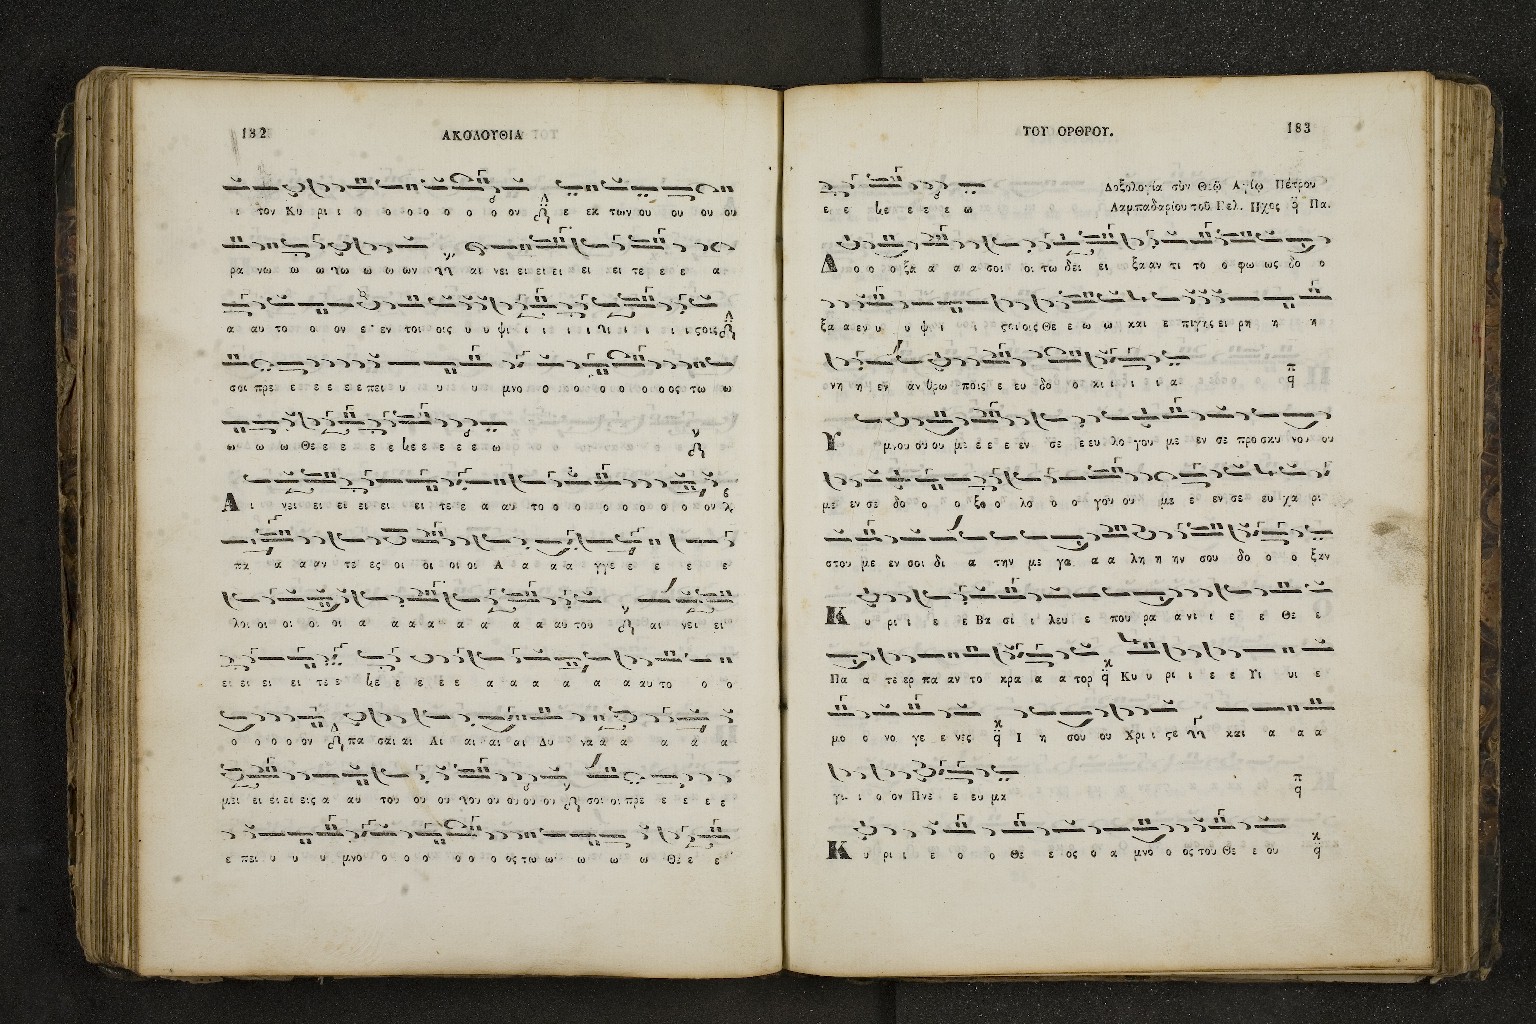 182 ΑΚΟΛΟΥΘΙΑ
ι τον Κυ ρι ι ο ο ο ο ο ο ο ο ον ε εκ των ου ου ου ου
ρα νω ω ω νω ω ω ων αι νει ει ει ει ει ει τε ε ε α
α αυ το ο ον ε εν τοι οις υ υ ψι ι ι ι ι ι ι ι ι ςοις
σοι πρε ε ε ε ε ε πει υ υ υ μνο ο ο ο ο ο ο ος τω ω
ω ω ω Θε ε ε ε ε ε ε ε ε ε ω
Αι νει ει ει ει ει ει τε ε α αυ το ο ο ο ο ο ο ο ον
πα α α αν τε ες οι οι οι οι Α α α α γγε ε ε ε ε
λοι οι οι οι οι οι α α α α α α α α αυ του αι νει ει
ει ει ει ει τε ε ε ε ε ε α α α α α α αυ το ο ο
ο ο ο ο ον πα σαι αι Αι αι αι αι Δυ να α α α α α
μει ει ει ει εις α αυ του ου ου ου ου ου ου ου σοι οι πρε ε ε ε ε
ε πει υ υ υ μνο ο ο ο ο ο ο ος τω ω ω ω ω Θε ε ε
ΤΟΥ ΟΡΘΡΟΥ. 183
Δοξολογία σὺν Θεῷ Αγίῳ Πέτρου
ε ε ε ε ε ε ω Λαμπαδαρίου τοῦ Πελ. Ηχος Πα.
Δο ο ο ξα α α α σοι οι τω δει ει ξα αν τι το ο φω ως δο ο
ξα α εν υ υ ψι ι ι ςοι οις Θε ε ω ω και ε πι γης ει ρη η η
νη η εν αν θρω ποις ε ευ δο ο κι ι ι ι α
Υ μνου ου ου με ε ε ε εν σε ε ευ λο γου με εν σε προ σκυ νου ου
με εν σε δο ο ο ξο ο λο ο ο γου ου με ε εν σε ευ χα ρι
στου με εν σοι δι α την με γα α α λη η ην σου δο ο ο ξαν
Κυ ρι ι ε ε Βα σι ι λευ ε που ρα α νι ι ε ε Θε ε
Πα α τε ερ πα αν το κρα α α τορ Κυ υ ρι ι ε ε Υι υι ε
μο ο νο γε ε νες Ι η σου ου Χρι ι ςε και α α α
γι ι ο ον Πνε ε ευ μα
Κυ ρι ι ε ο ο Θε ε ος ο α μνο ο ος του Θε ε ου